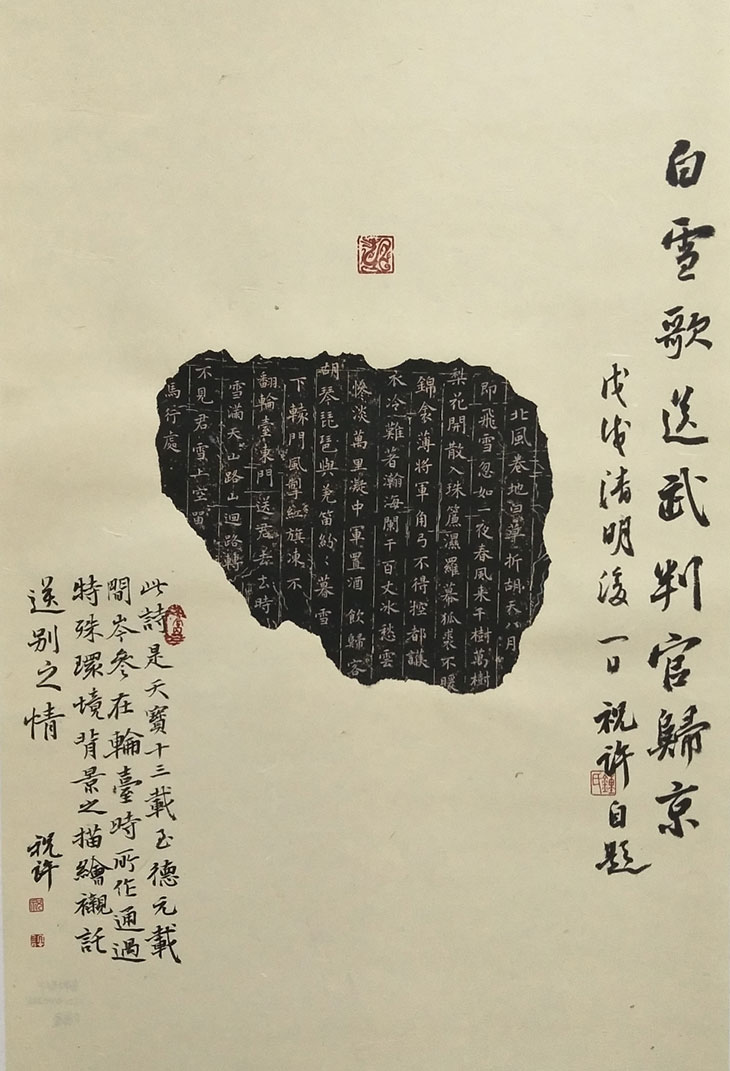 白雪歌送武判官歸京
戊戌清明後一日祝许自題
北風卷地白草折胡天八月
即飛雪忽如一夜春風来千樹萬樹
梨花開散入珠簾濕羅幕狐裘不暖
錦衾薄将軍角弓不得控都護
衣冷難著瀚海闌干百丈冰愁雲
惨淡萬里凝中軍置酒飲歸客
胡琴琵琶與羌笛紛〻暮雪
下轅門風掣紅旗凍不
翻輪臺東門送君去去時
雪滿天山路山迴路轉
不見君雪上空留
馬行處
此詩是天寶十三載至德元載
間岑參在輪臺時所作通過
特殊環境背景之描繪襯託
送别之情
祝許